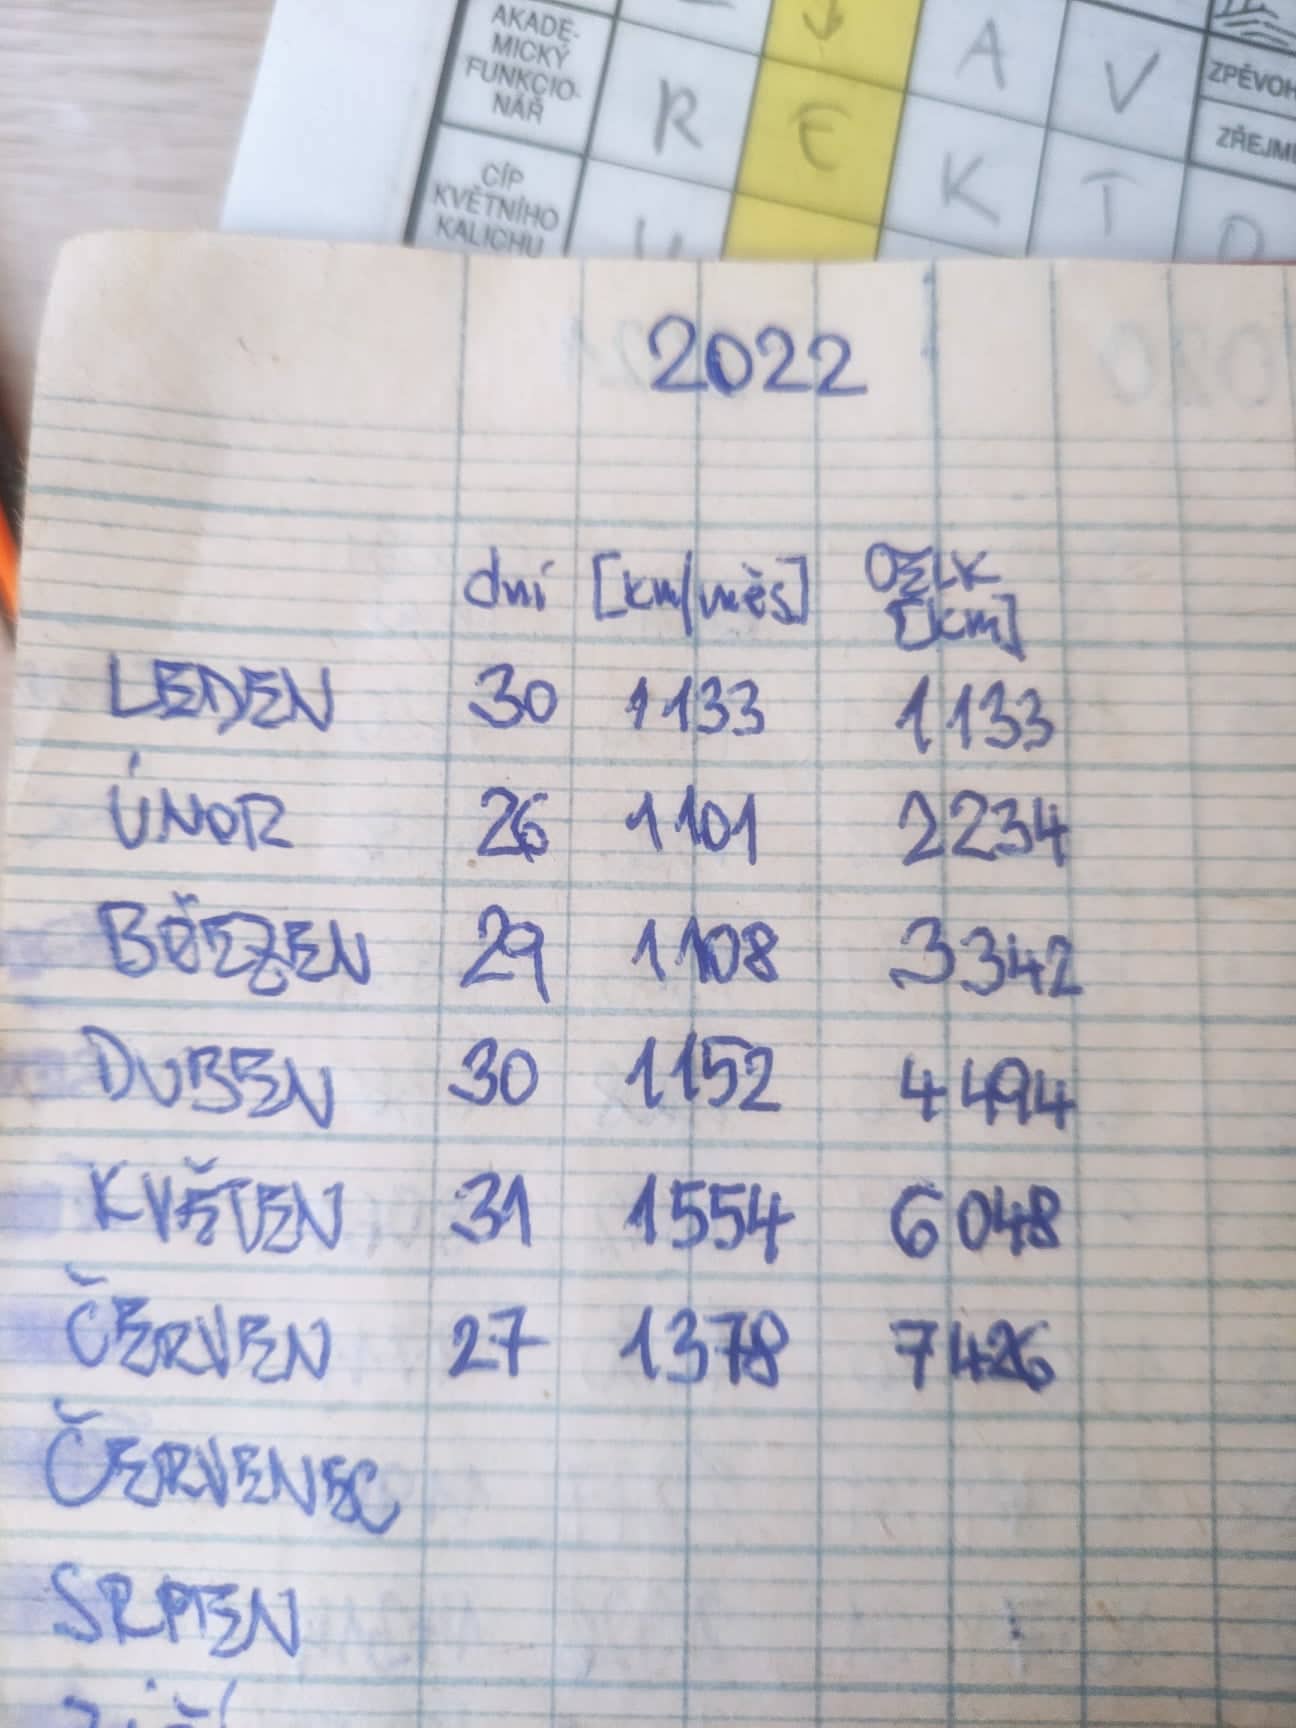 AKADE-
MICKÝ
FUNKCIO-
NÁŘ
R E K T
A V
ZPĚVOH
ZŘEJMĚ
CÍP
KVĚTNÍHO
KALICHU
2022
dní [km/měs] CELK
[km]
LEDEN 30 1133 1133
ÚNOR 26 1101 2234
BŘEZEN 29 1108 3342
DUBEN 30 1152 4494
KVĚTEN 31 1554 6048
ČERVEN 27 1378 7426
ČERVENEC
SRPEN